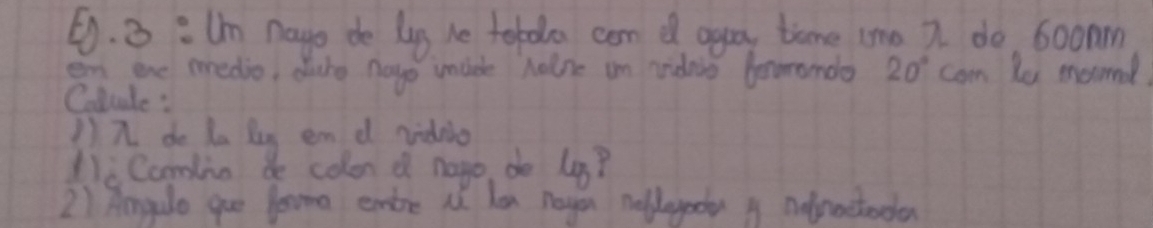 Ej. 3: Un rayo de luz se con el agua, tiene una λ de 600nm
en ese medio, dicho rayo incide sobre un vidrio formando 20° con la normal.
Calcule:
1) λ de la luz en el vidrio
1) ¿Cambia de color el rayo de luz?
2) Angulo que forma entre si los rayos reflejados y refractados